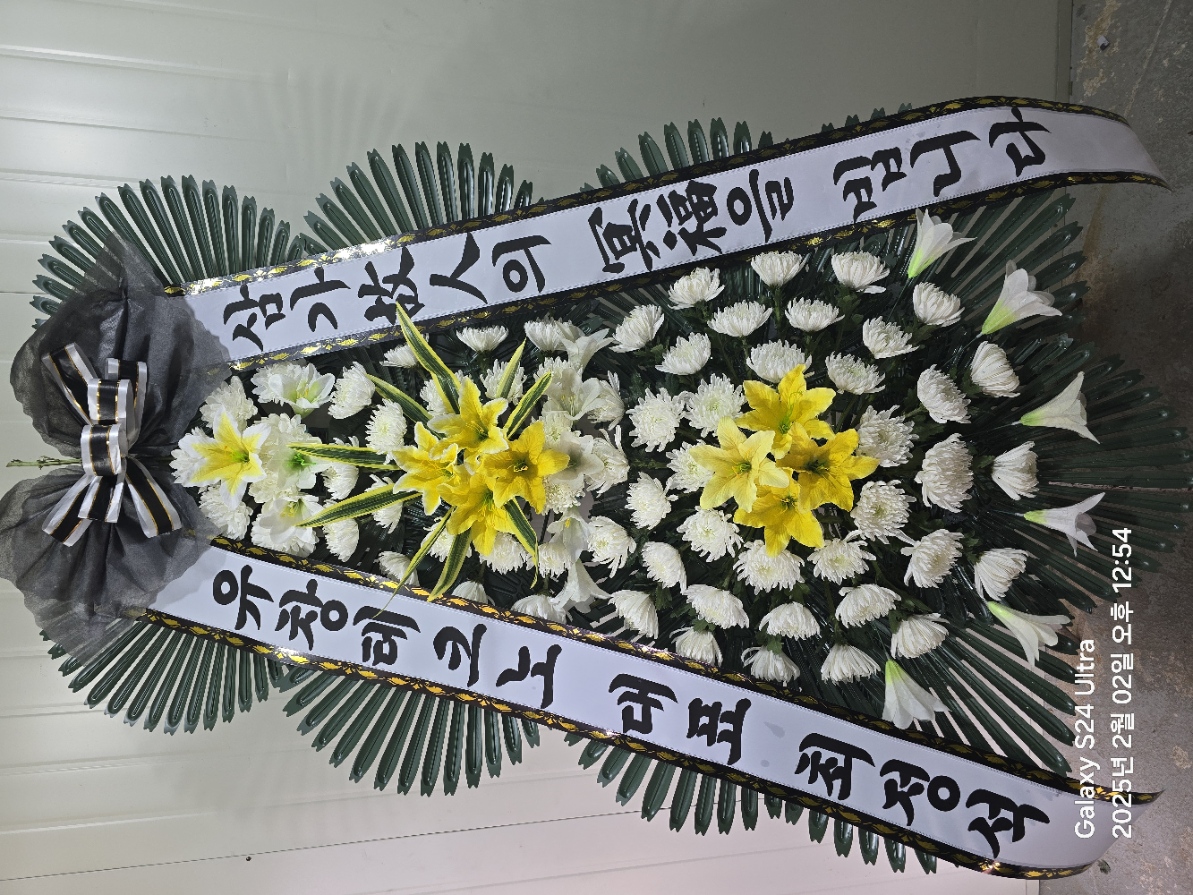 삼가 故人의 冥福을 빕니다
유창테크노 대표 최정석
Galaxy S24 Ultra
2025년 2월 02일 오후 12:54